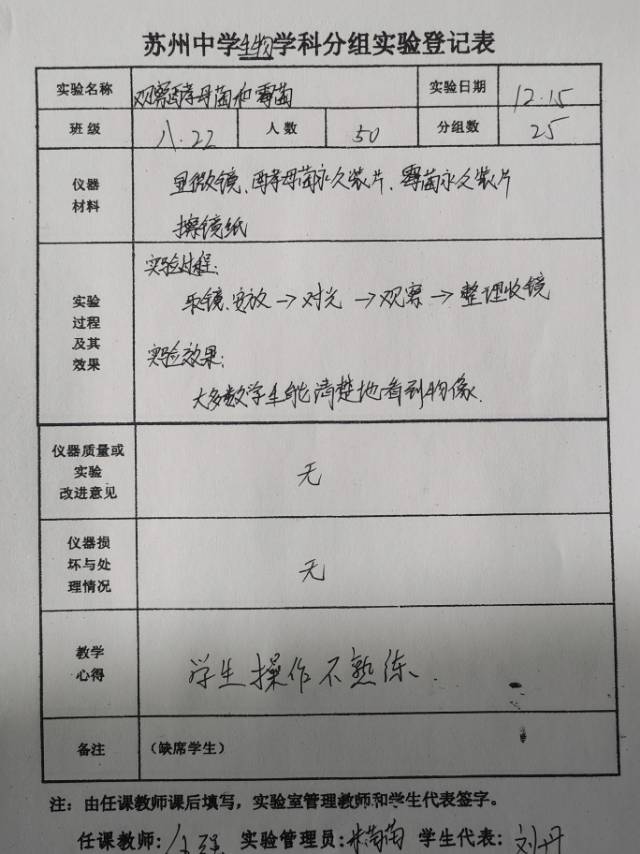 苏州中学生物学科分组实验登记表
实验名称 观察酵母菌和霉菌 实验日期 12.15
班级 八.22 人数 50 分组数 25
仪器
材料
显微镜、酵母菌永久装片、霉菌永久装片
擦镜纸
实验
过程
及其
效果
实验过程:
取镜、安放→对光→观察→整理收镜
实验效果:
大多数学生能清楚地看到物像.
仪器质量或
实验
改进意见
无
仪器损
坏与处
理情况
无
教学
心得
学生操作不熟练.
备注 (缺席学生)
注:由任课教师课后填写,实验室管理教师和学生代表签字。
任课教师: 实验管理员: 学生代表:刘丹